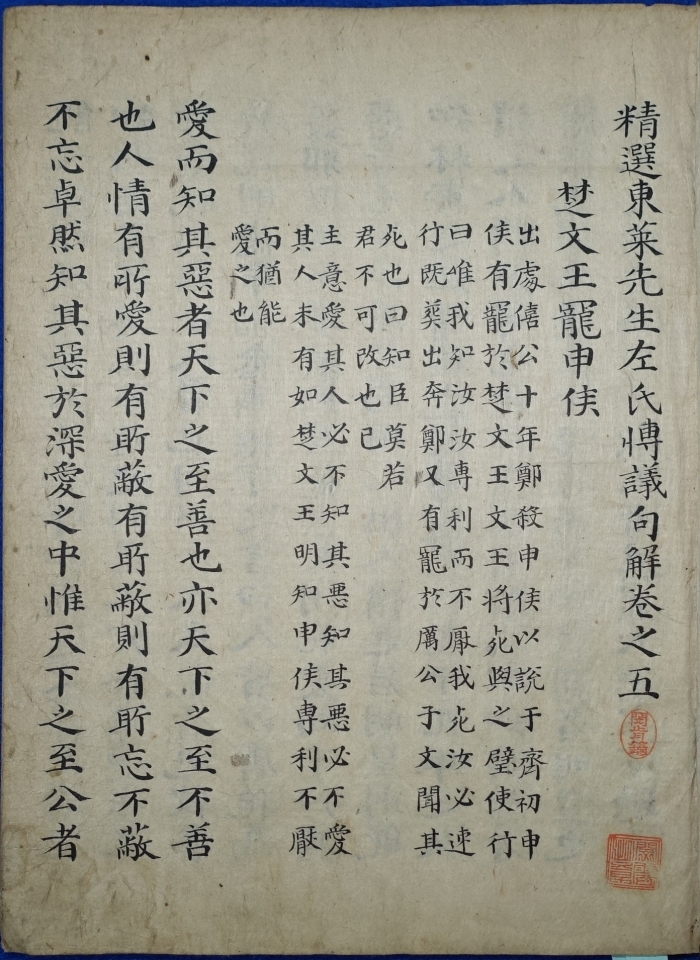 精選東萊先生左氏愽議句解卷之五
楚文王寵申侯
出處僖公十年鄭殺申侯以説于齊初申
侯有寵於楚文王文王將死與之璧使行
曰唯我知汝汝専利而不厭我死汝必速
行既葬出奔鄭又有寵於厲公子文聞其
死也曰知臣莫若
君不可改也已
主意愛其人必不知其悪知其悪必不愛
其人未有如楚文王明知申侯専利不厭
而猶能
愛之也
愛而知其惡者天下之至善也亦天下之至不善
也人情有所愛則有所蔽有所蔽則有所忘不蔽
不忘卓然知其惡於深愛之中惟天下之至公者